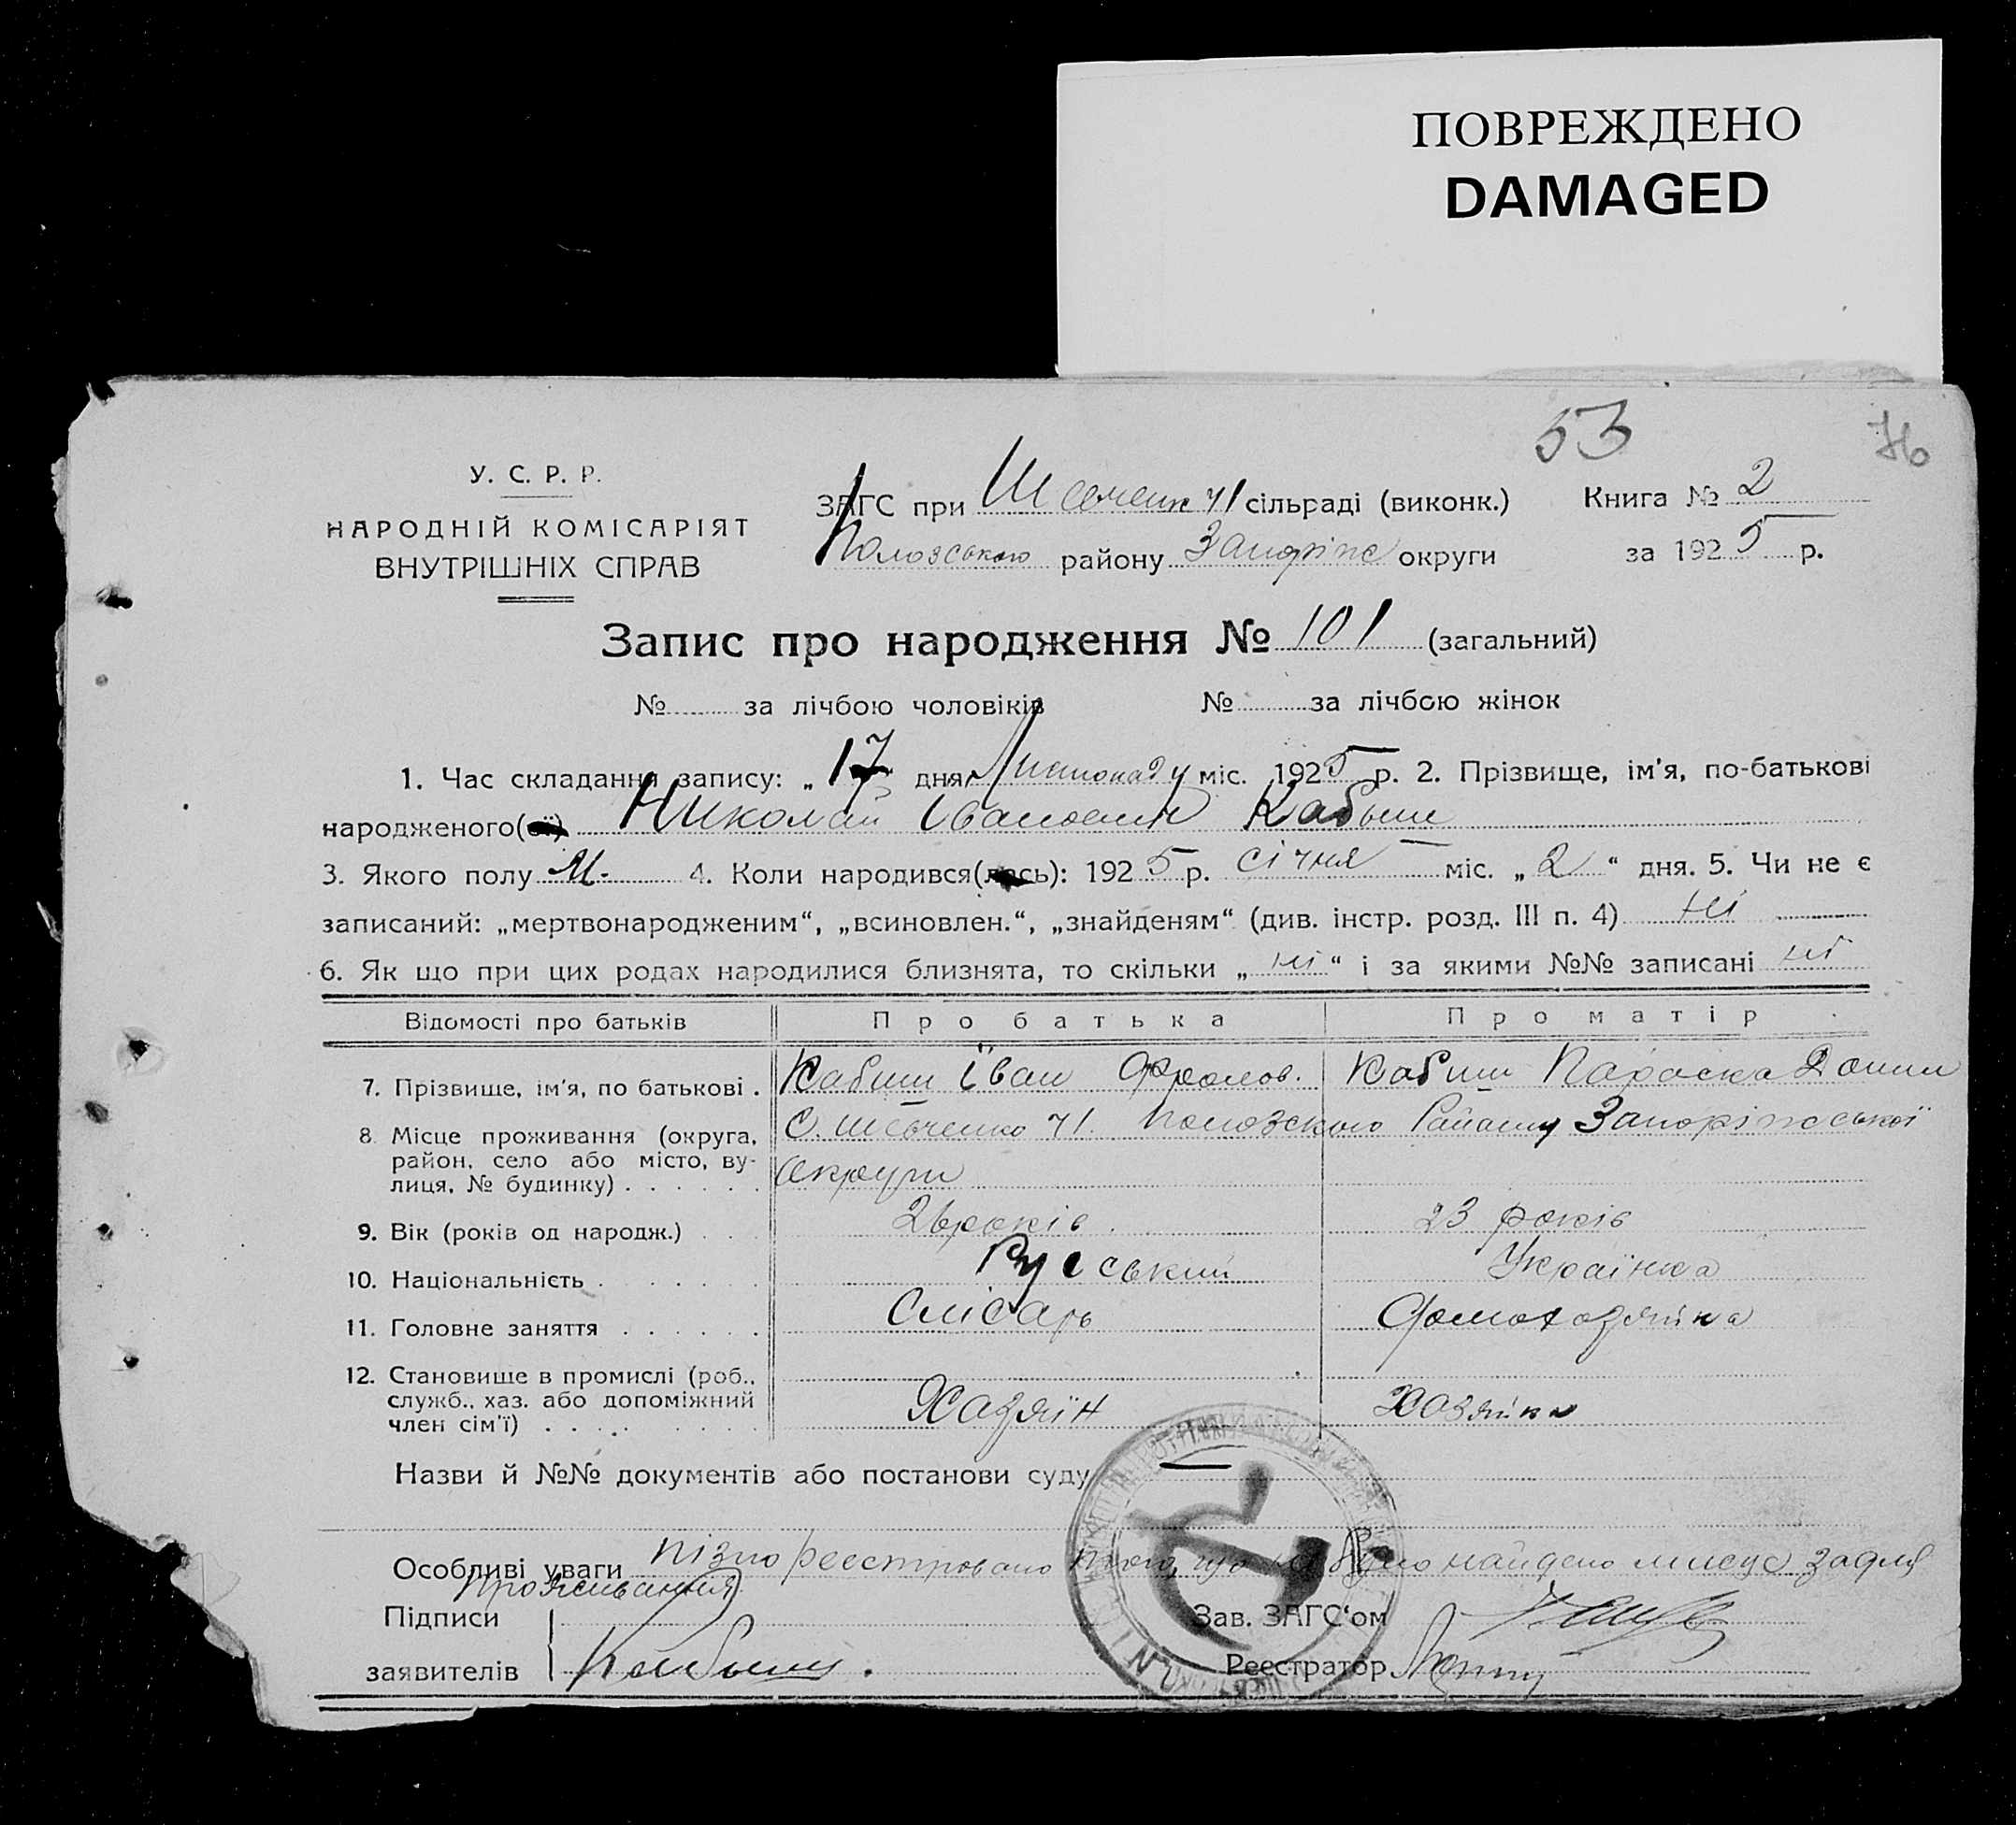 ПОВРЕЖДЕНО
DAMAGED
53 76
У. С. Р. Р.
НАРОДНІЙ КОМІСАРІЯТ
ВНУТРІШНІХ СПРАВ
ЗАГС при Шевченк ч1 сільраді (виконк.) Книга № 2
Пологського району Запоріж округи за 1925 р.
Запис про народження № 101 (загальний)
№ за лічбою чоловіків № за лічбою жінок
1. Час складання запису: „ 17 дня Листопаду міс. 1925 р. 2. Прізвище, ім'я, по-батькові
народженого Николай Іванович Кабыш
3. Якого полу М. 4. Коли народився: 1925 р. Січня міс. „ 2 “ дня. 5. Чи не є
записаний: „мертвонародженим“, „всиновлен.“, „знайденям“ (див. інстр. розд. III п. 4) ні
6. Як що при цих родах народилися близнята, то скільки „ ні “ і за якими №№ записані ні
Відомості про батьків Про батька Про матір
7. Прізвище, ім'я, по батькові . Кабиш Іван Фролов. Кабиш Параска Данил
8. Місце проживання (округа, район, село або місто, вулиця, № будинку) С. Шевченко ч1. Пологського Району Запоріжської
Округи
9. Вік (років од народж.) 26 років. 23 років
10. Національність Руський Українка
11. Головне заняття Слісарь Домохозяйка
12. Становище в промислі (роб., служб., хаз. або допоміжний член сім'ї) Хазяїн Хозяйка
Назви й №№ документів або постанови суду —
Особливі уваги пізно реєстровано того, що найдено місце задля
проживання
Підписи Зав. ЗАГС'ом
заявителів Кабыш. Реєстратор